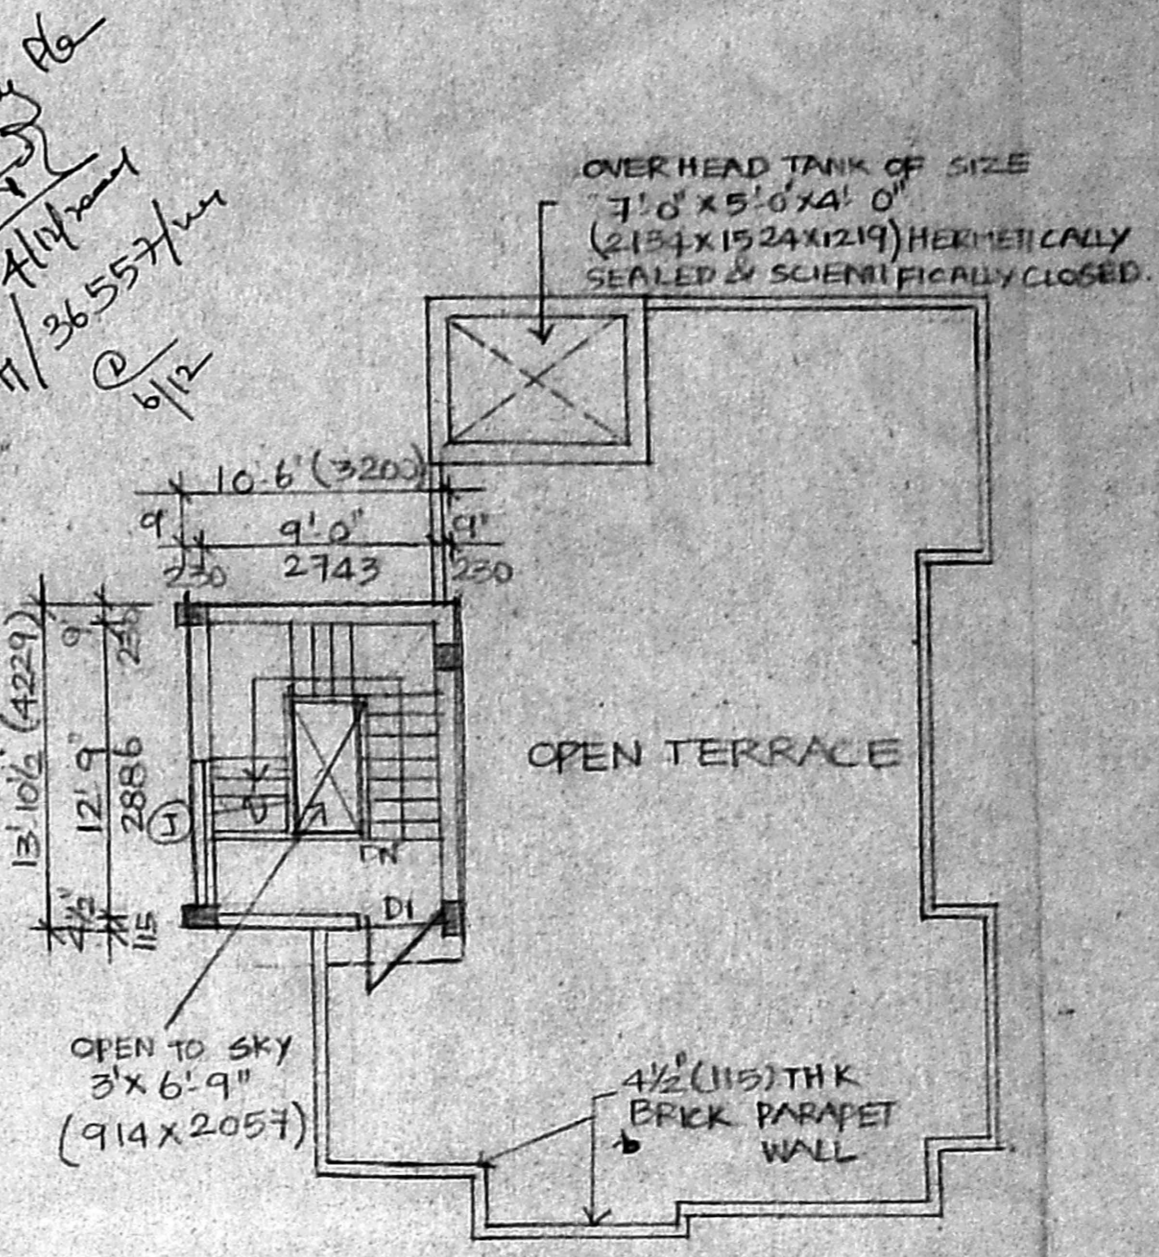 4/12/
/36557/
6/12
OVER HEAD TANK OF SIZE
7'-0" X 5'-0" X 4'-0"
(2134 X 1524 X 1219) HERMETICALLY
SEALED & SCIENTIFICALLY CLOSED.
10'-6" (3200)
9" 9'-0" 9"
230 2743 230
13'-10½" (4229)
9" 12'-9" 4½"
230 2886 115
J
OPEN TERRACE
DN
D1
OPEN TO SKY
3' X 6'-9"
(914 X 2057)
4½" (115) THK
BRICK PARAPET
WALL